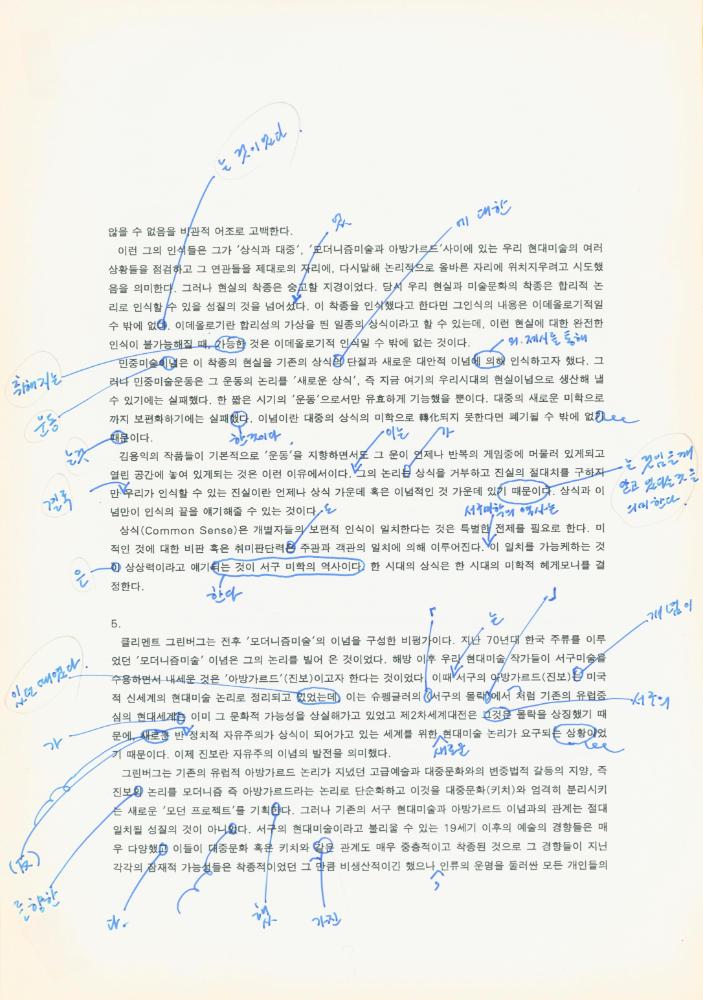 는 것이었다.
있
에 대한
않을 수 없음을 비관적 어조로 고백한다.
이런 그의 인식들은 그가 '상식과 대중', '모더니즘미술과 아방가르드'사이에 있는 우리 현대미술의 여러
상황들을 점검하고 그 연관들을 제대로의 자리에, 다시말해 논리적으로 올바른 자리에 위치지우려고 시도했
음을 의미한다. 그러나 현실의 착종은 숭고할 지경이었다. 당시 우리 현실과 미술문화의 착종은 합리적 논
리로 인식할 수 있을 성질의 것을 넘어섰다. 이 착종을 인식했다고 한다면 그인식의 내용은 이데올로기적일
수 밖에 없다. 이데올로기란 합리성의 가상을 띈 일종의 상식이라고 할 수 있는데, 이런 현실에 대한 완전한
인식이 불가능해질 때, 가능한 것은 이데올로기적 인식일 수 밖에 없는 것이다.
의 제시를 통해
민중미술이념은 이 착종의 현실을 기존의 상식의 단절과 새로운 대안적 이념에 의해 인식하고자 했다. 그
취해지는
러나 민중미술운동은 그 운동의 논리를 '새로운 상식', 즉 지금 여기의 우리시대의 현실이념으로 생산해 낼
수 있기에는 실패했다. 한 짧은 시기의 '운동'으로서만 유효하게 기능했을 뿐이다. 대중의 새로운 미학으로
운동
까지 보편화하기에는 실패했다. 이념이란 대중의 상식의 미학으로 轉化되지 못한다면 폐기될 수 밖에 없기
때문이다.
한 것이다.
이는
가
는것
김용익의 작품들이 기본적으로 '운동'을 지향하면서도 그 운이 언제나 반복의 게임중에 머물러 있게되고
열린 공간에 놓여 있게되는 것은 이런 이유에서이다. 그의 논리는 상식을 거부하고 진실의 절대치를 구하지
는 것임을 깨
닫고 있다는 것을
의미한다.
결국
만 우리가 인식할 수 있는 진실이란 언제나 상식 가운데 혹은 이념적인 것 가운데 있기 때문이다. 상식과 이
념만이 인식의 끝을 얘기해줄 수 있는 것이다.
도
서구미학의 역사는
상식(Common Sense)은 개별자들의 보편적 인식이 일치한다는 것은 특별한 전제를 필요로 한다. 미
적인 것에 대한 비판 혹은 취미판단력은 주관과 객관의 일치에 의해 이루어진다. 이 일치를 가능케하는 것
은
이 상상력이라고 얘기되는 것이 서구 미학의 역사이다. 한 시대의 상식은 한 시대의 미학적 헤게모니를 결
정한다.
한다
5.
는
개념이
클리멘트 그린버그는 전후 '모더니즘미술'의 이념을 구성한 비평가이다. 지난 70년대 한국 주류를 이루
었던 '모더니즘미술' 이념은 그의 논리를 빌어 온 것이었다. 해방 이후 우리 현대미술 작가들이 서구미술을
있던 때였다.
수용하면서 내세운 것은 '아방가르드'(진보)이고자 한다는 것이었다. 이때 서구의 아방가르드(진보)는 미국
적 신세계의 현대미술 논리로 정리되고 있었는데, 이는 슈펭글러의 '서구의 몰락'에서 처럼 기존의 유럽중
서구의
심의 현대세계는 이미 그 문화적 가능성을 상실해가고 있었고 제2차세계대전은 그것은 몰락을 상징했기 때
가
문에, 새로운 반 정치적 자유주의가 상식이 되어가고 있는 세계를 위한 현대미술 논리가 요구되는 상황이었
새로운
기 때문이다. 이제 진보란 자유주의 이념의 발전을 의미했다.
그린버그는 기존의 유럽적 아방가르드 논리가 지녔던 고급예술과 대중문화와의 변증법적 갈등의 지양, 즉
진보의 논리를 모더니즘 즉 아방가르드라는 논리로 단순화하고 이것을 대중문화(키치)와 엄격히 분리시키
는 새로운 '모던 프로젝트'를 기획한다. 그러나 기존의 서구 현대미술과 아방가르드 이념과의 관계는 절대
일치될 성질의 것이 아니었다. 서구의 현대미술이라고 불리울 수 있는 19세기 이후의 예술의 경향들은 매
(反)
우 다양했고 이들이 대중문화 혹은 키치와 갖은 관계도 매우 중층적이고 착종된 것으로 그 경향들이 지닌
각각의 잠재적 가능성들은 착종적이었던 그 만큼 비생산적이긴 했으나 인류의 운명을 둘러싼 모든 개인들의
다.
했
가진